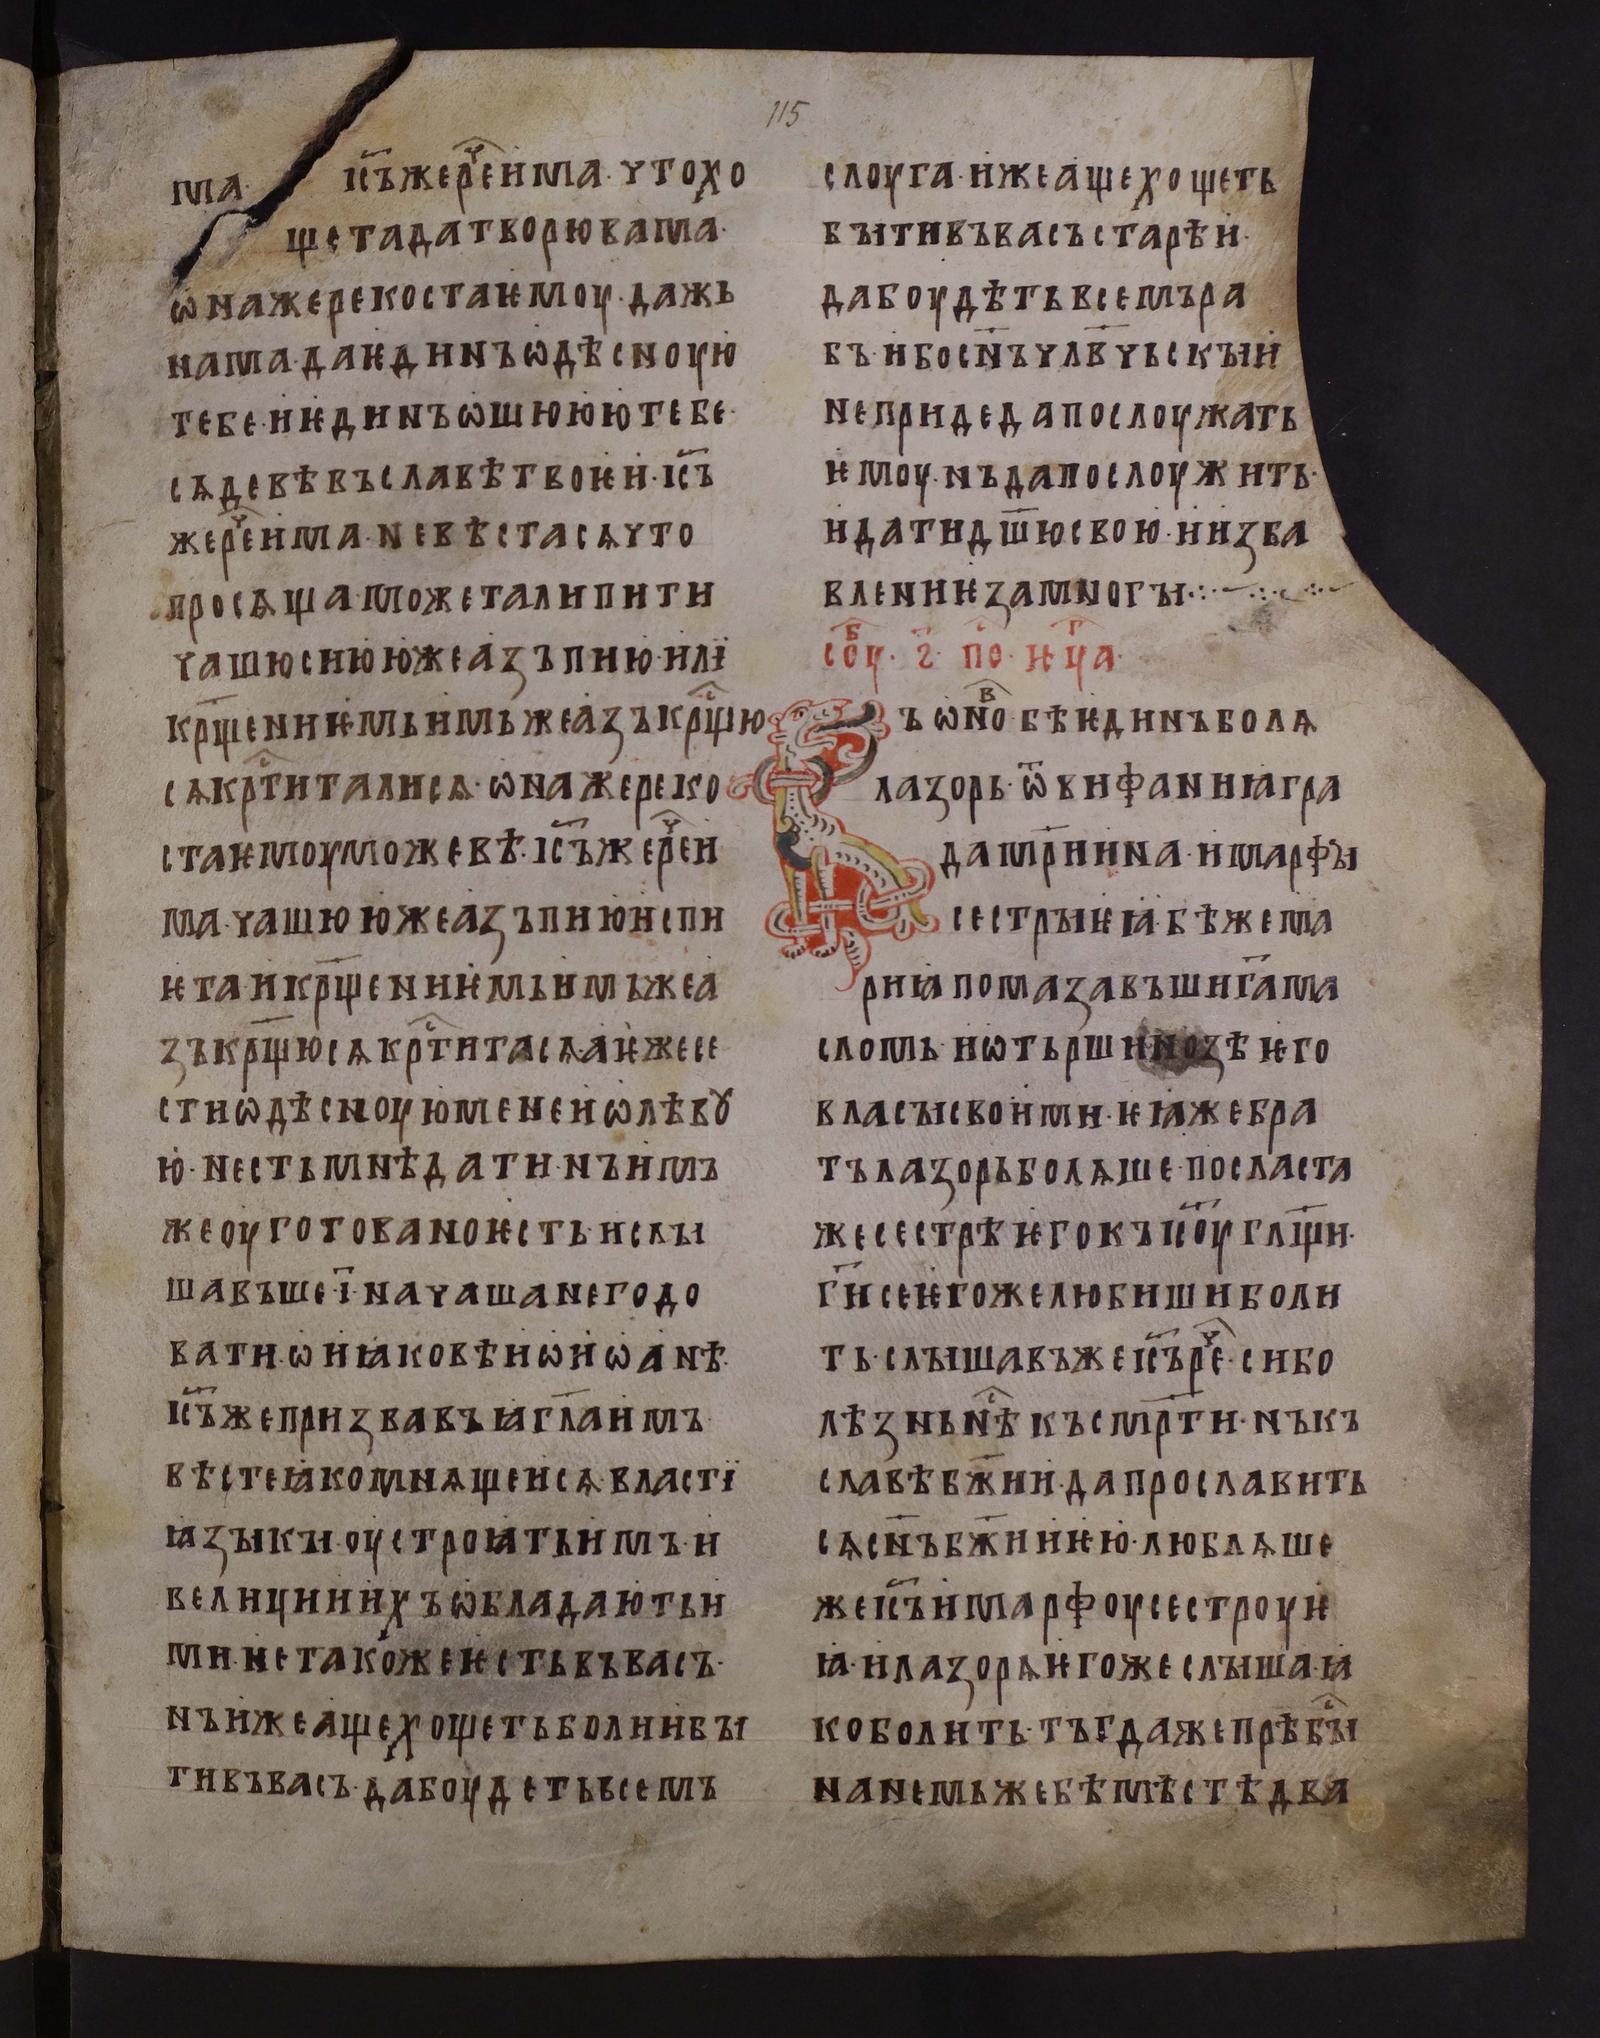 115
ма· іс҃ъжерⷱ҇еима· чтохо
щетадатворювама·
ѡнажерекостаѥмоу·дажь
нама·даѥдинъѡдѣсноую
тебе·иѥдинъѡшююютебе·
сѧдевѣвъславѣтвоѥи·іс҃ъ
жерⷱ҇еима·невѣстасѧчто
просѧща·можеталипити
чашюсиююжеазъпию·илї
кр҃щениѥмьимьжеазъкрⷭ҇щю
сѧкрⷭ҇титалисѧ·ѡнажереко
стаѥмоуможевѣ·іс҃ъжерⷱ҇еи
ма·чашююжеазъпиюиспи
ѥтаикр҃щениѥмьимьжеа
зъкр҃щюсѧкрⷭ҇титасѧаѥжесе
стиѡдѣсноуюменеиѡлѣвꙋ
ю·нестьмнѣдати·нъимъ
жеоуготованоѥсть·ислы
шавъше·і҃·начашанегодо
вати·ѡиꙗковѣиѡиѡанѣ·
іс҃ъжепризвавъꙗгл҃аимъ·
вѣстеꙗкомнѧщеисѧ·властї
ꙗзыкы·оустроꙗтьимъ·и
велициииихъѡбладаютьи
ми·нетакожеѥстьвъвасъ·
нъижеащехощетьболиибы
тивъвасъ·дабоудетьвсемъ
слоуга·ижеащехощеть
бытивъвасъстарѣи·
дабоудѣтьвсемъра
бъ·ибосн҃ъчл҃вчьскыи
непридедапослоужать
ѥмоу·нъдапослоужить·
идатидш҃юсвою·иизба
влениѥзамногы·:·~·:·~·:·
соуⷠ· г҃· поⷭ҇· ѥуаⷢ·
ъѡноⷡ·бѣѥдинъболѧ
лазорь·ѿвифаниꙗгра
дамр҃иина·имарфы
сестрыѥꙗ·бѣжема
риꙗпомазавъшиг҃ама
сломь·иѡтьршинозѣѥго
власысвоими·ѥꙗжебра
тълазорьболѧше·посласта
жесестрѣѥгокъіс҃оугл҃щи·
г҃исеѥгожелюбишиболи
ть·слышавъжеіс҃ърⷱ҇е·сибо
лѣзньнⷭ҇ѣкъсмр҃ти·нъкъ
славѣбж҃ии·дапрославить
сѧсн҃ъбж҃ииѥю·люблѧше
жеіс҃ъимарфоусестроуѥ
ꙗ·илазорѧѥгожеслыша·ꙗ
коболить·тъгдажепрѣбⷭ҇ы
нанемьжебѣмѣстѣдва